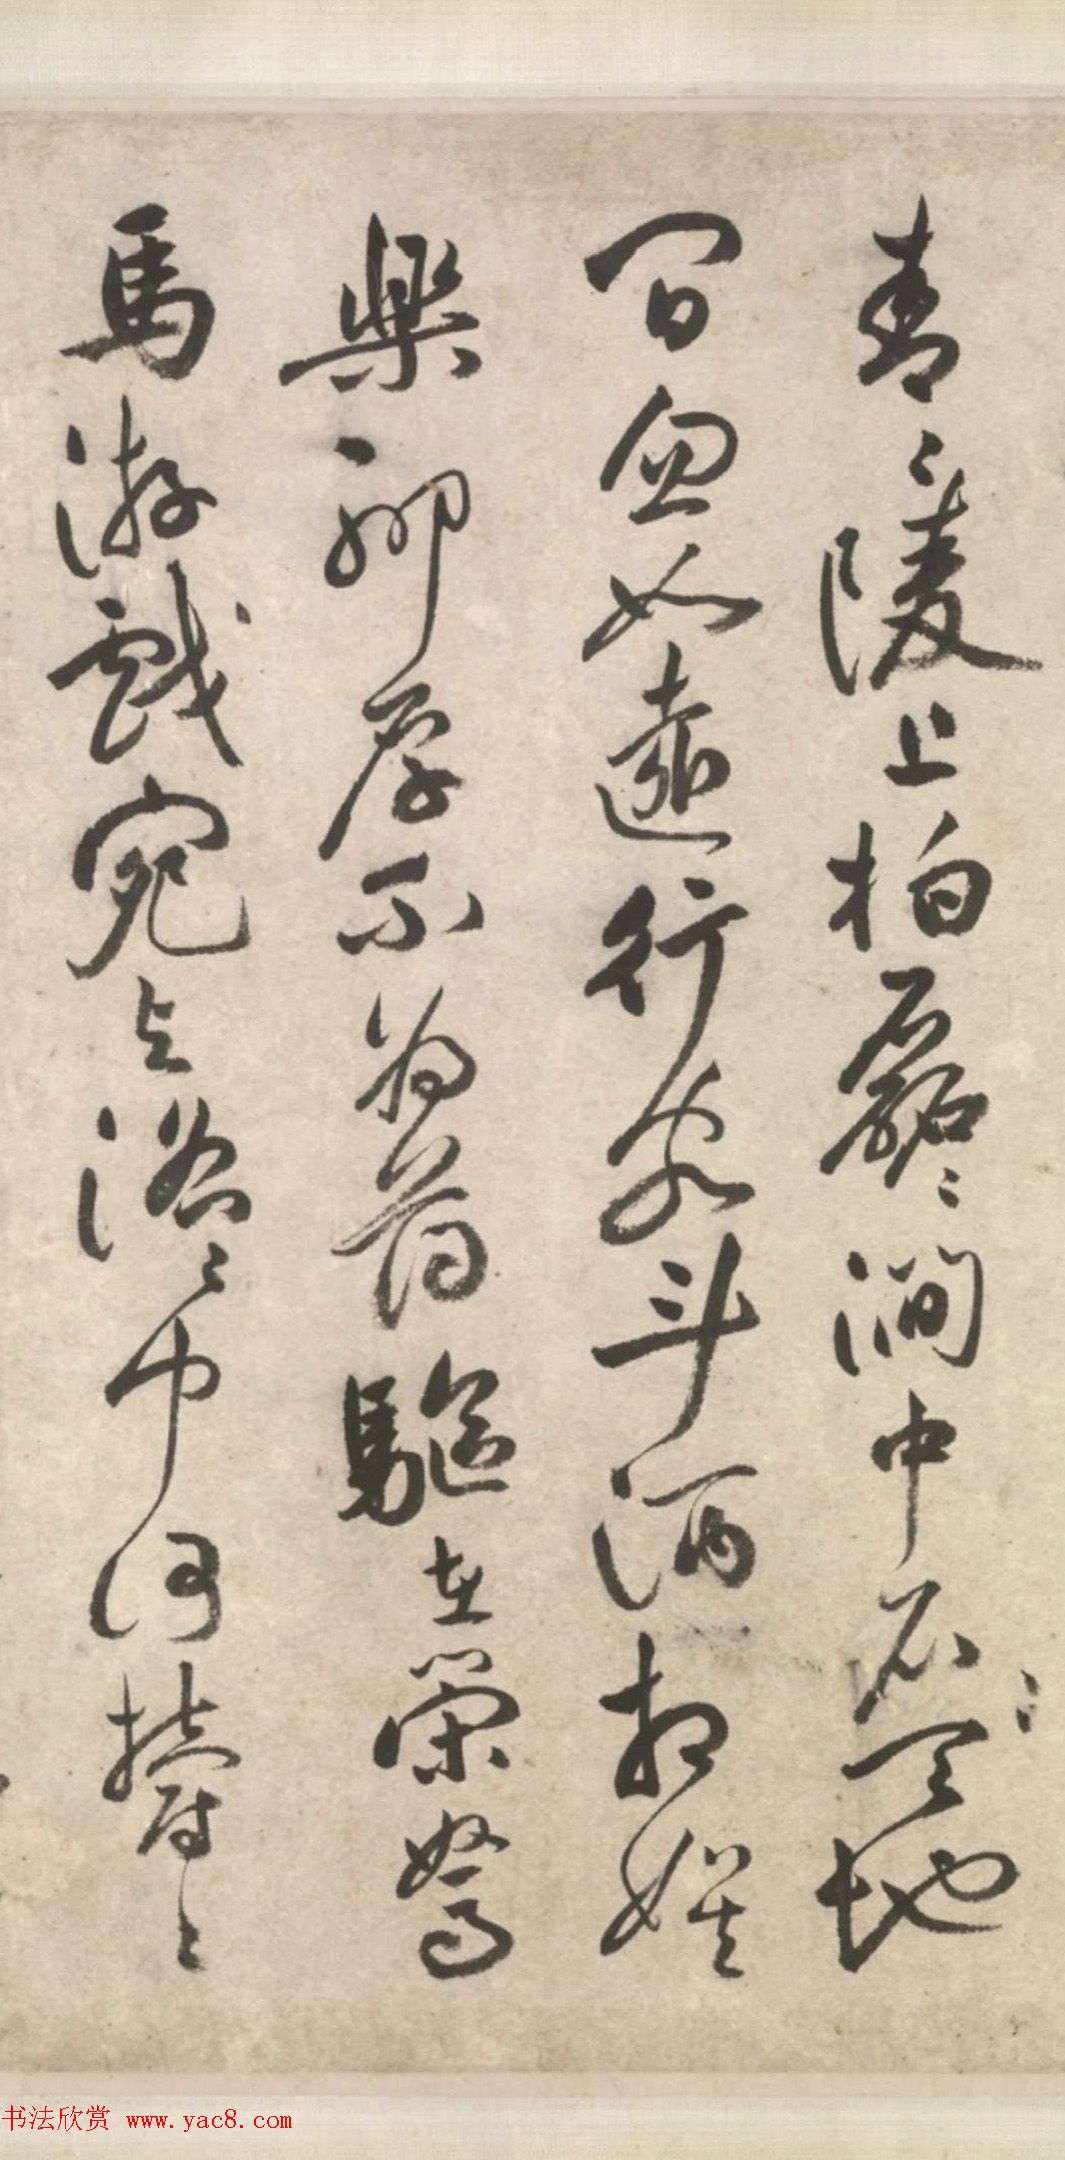 青〻陵上柏磊〻澗中石天地
間忽如遠行客斗酒相娛
樂聊厚不為薄驅車策駑
馬游戲宛与洛〻中何鬱〻
书法欣赏 www.yac8.com